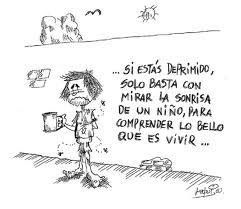 ... SI ESTÁS DEPRIMIDO,
SOLO BASTA CON
MIRAR LA SONRISA
DE UN NIÑO, PARA
COMPRENDER LO BELLO
QUE ES VIVIR ...